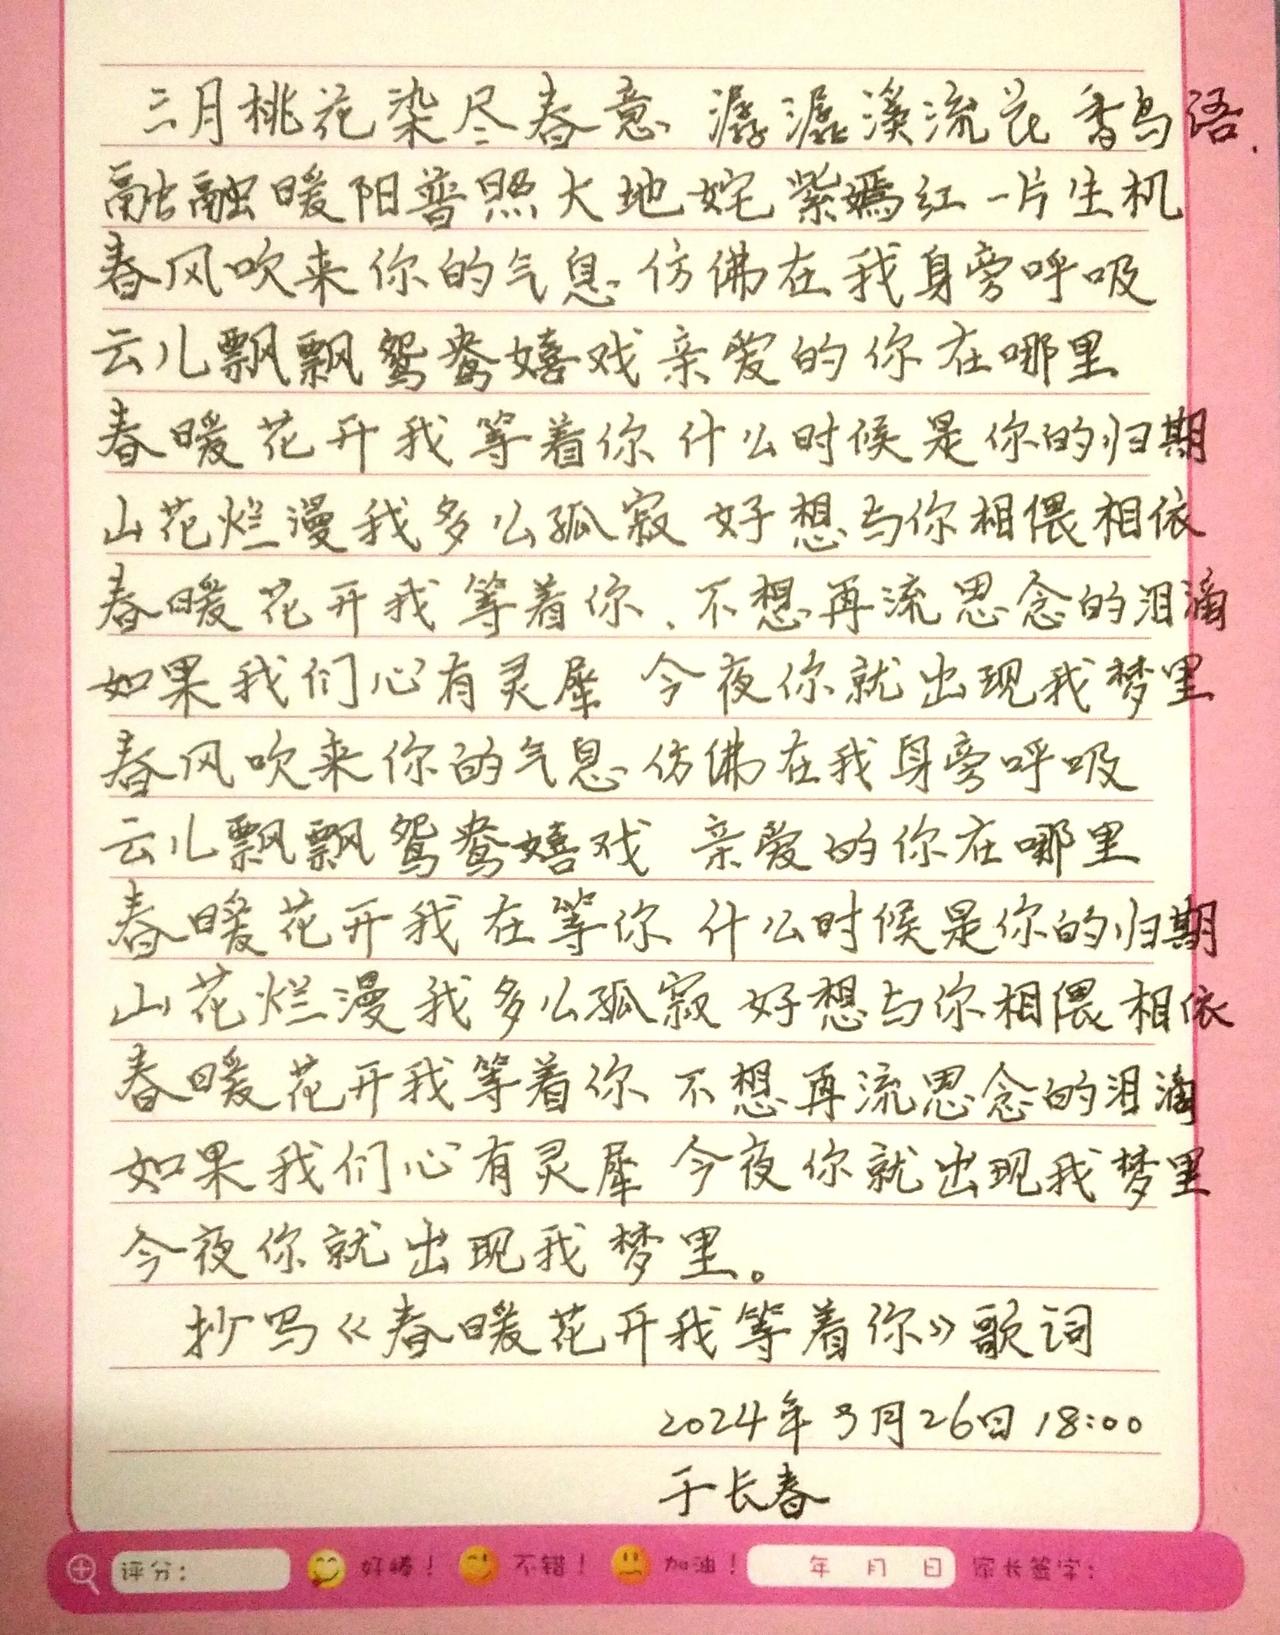 三月桃花染尽春意 潺潺溪流花香鸟语.
融融暖阳普照大地姹紫嫣红一片生机
春风吹来你的气息 仿佛在我身旁呼吸
云儿飘飘鸳鸯嬉戏亲爱的你在哪里
春暖花开我等着你 什么时候是你的归期
山花烂漫我多么孤寂 好想与你相偎相依
春暖花开我等着你、不想再流思念的泪滴
如果我们心有灵犀 今夜你就出现我梦里
春风吹来你的气息 仿佛在我身旁呼吸
云儿飘飘鸳鸯嬉戏 亲爱的你在哪里
春暖花开我在等你 什么时候是你的归期
山花烂漫我多么孤寂 好想与你相偎相依
春暖花开我等着你 不想再流思念的泪滴
如果我们心有灵犀 今夜你就出现我梦里
今夜你就出现我梦里。
抄写《春暖花开我等着你》歌词
2024年3月26日18:00
于长春
评分: 好棒! 不错! 加油! 年 月 日 家长签字: